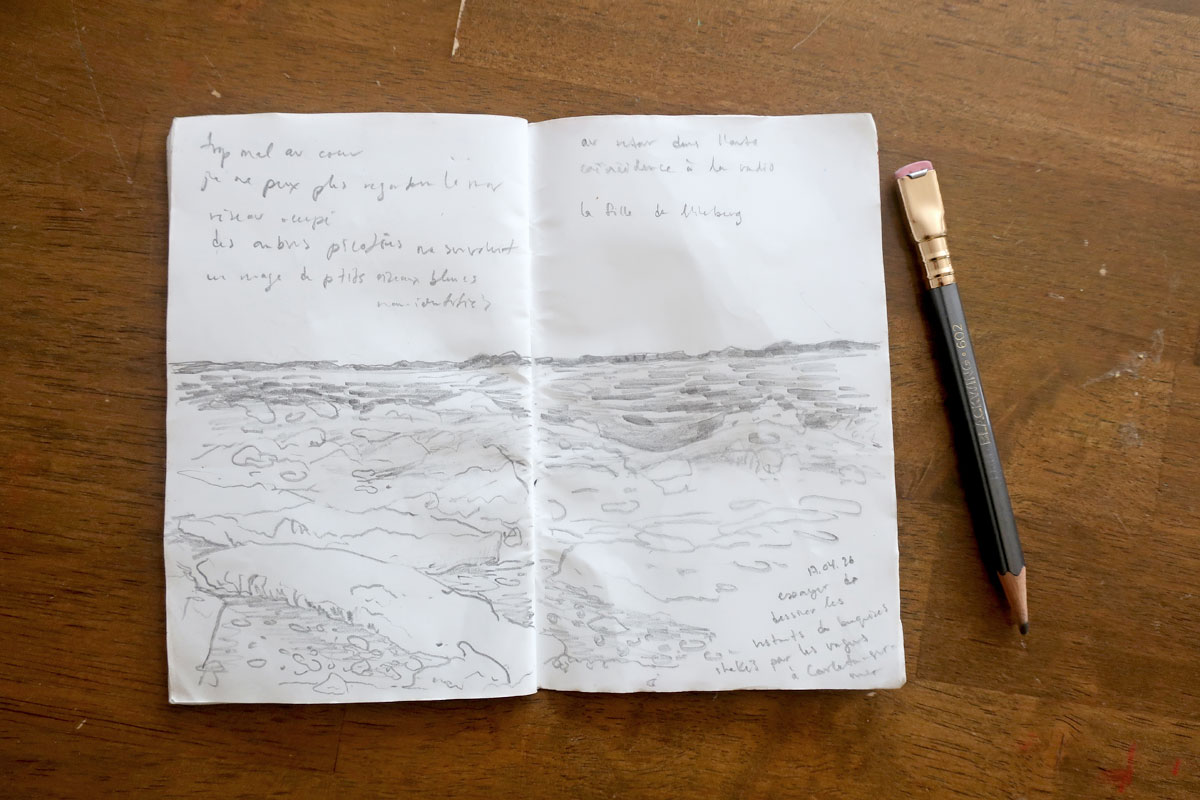 trop mal au coeur
je ne peux plus regarder le mar
réseau occupé
des ombres picotées me survolent
un nuage de ptits oiseaux blancs
non-identifiés
au retour dans l'auto
coïncidence à la radio
la fille de Uileberg
17.04.26
essayer de
dessiner les
restants de banquises
shakés par les vagues
à Carleton-sur-
mer
BLACKWING 602